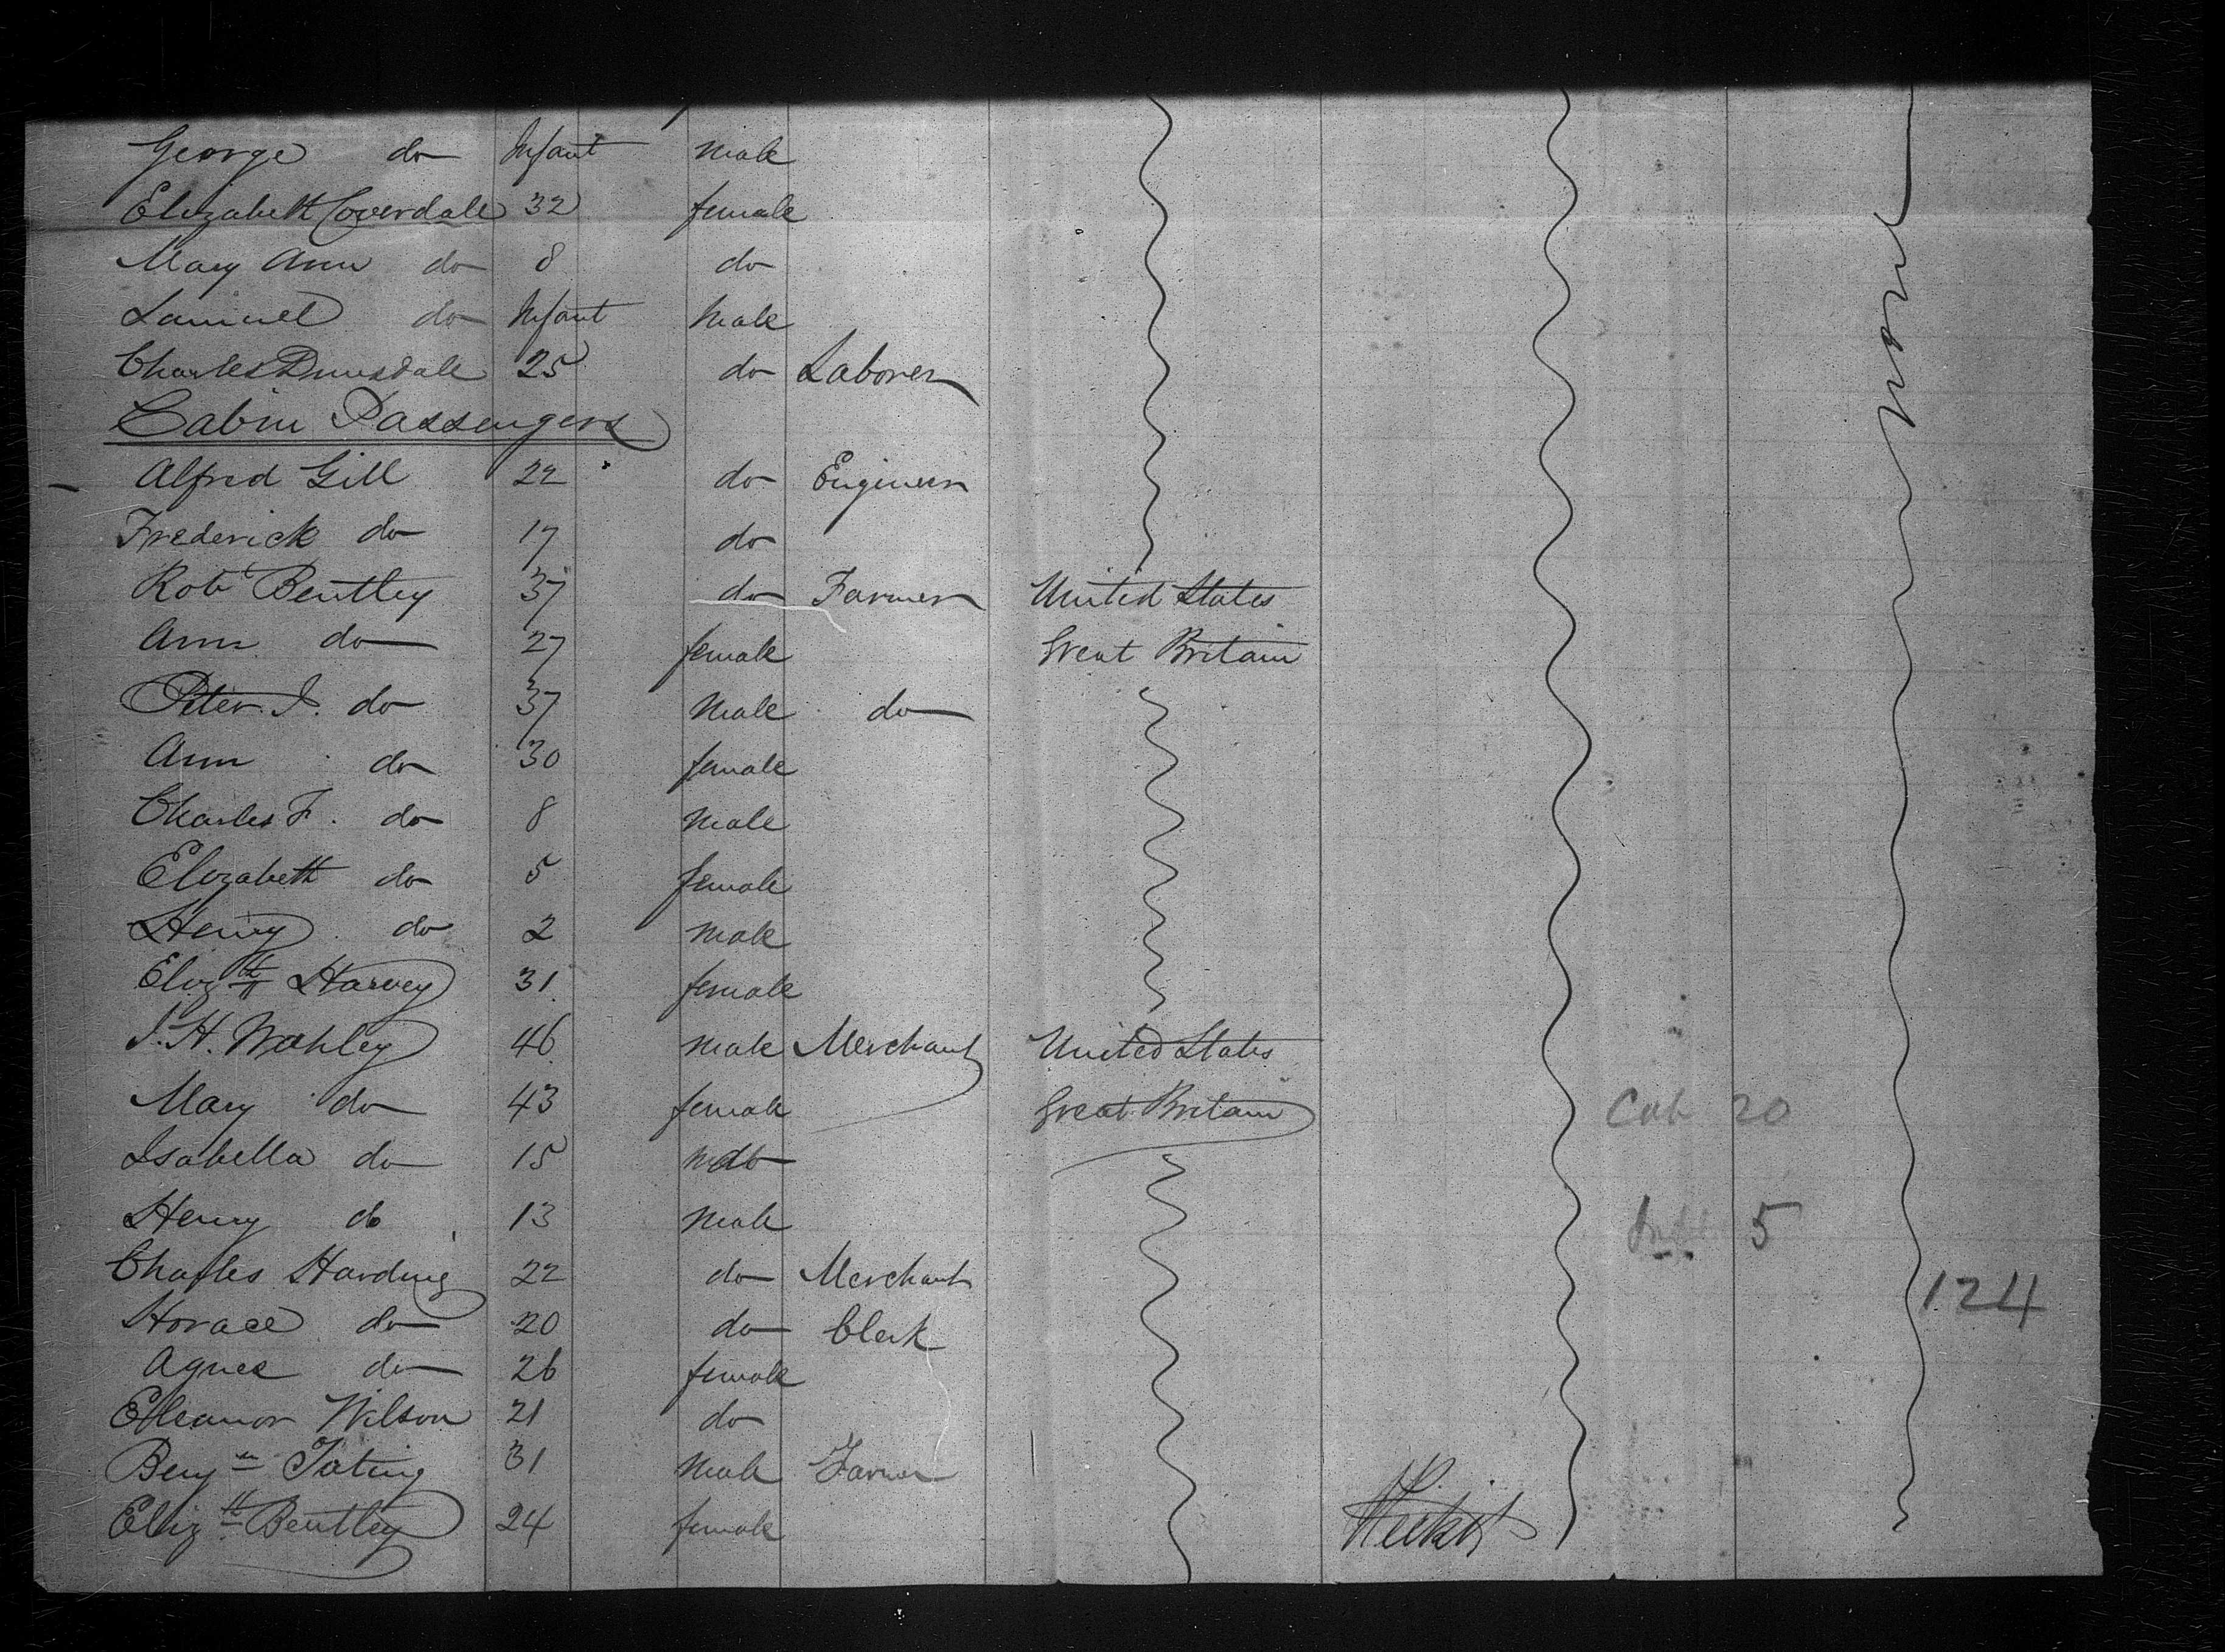 George do Infant male
Elizabeth Coverdale 32 female
Mary Ann do 8 do
Samuel do Infant Male
Charles Dunsdale 25 do Laborer
Cabin Passengers
Alfred Gill 22 do Engineer
Frederick do 17 do
Robt Bentley 37 do Farmer United States
Ann do 27 female Great Britain
Peter J. do 37 Male do
Ann do 30 female
Charles F. do 8 Male
Elizabeth do 5 female
Henry do 2 Male
Elizth Harvey 31 female
J. H. Wohley 46 Male Merchant United States
Mary do 43 female Great Britain
Isabella do 15 do
Henry do 13 Male
Charles Harding 22 do Merchant
Horace do 20 do Clerk
Agnes do 26 female
Eleanor Wilson 21 do
Benjn 31 Male Farmer
Elizth Bentley 24 female
none
Cab 20
Inft 5
124